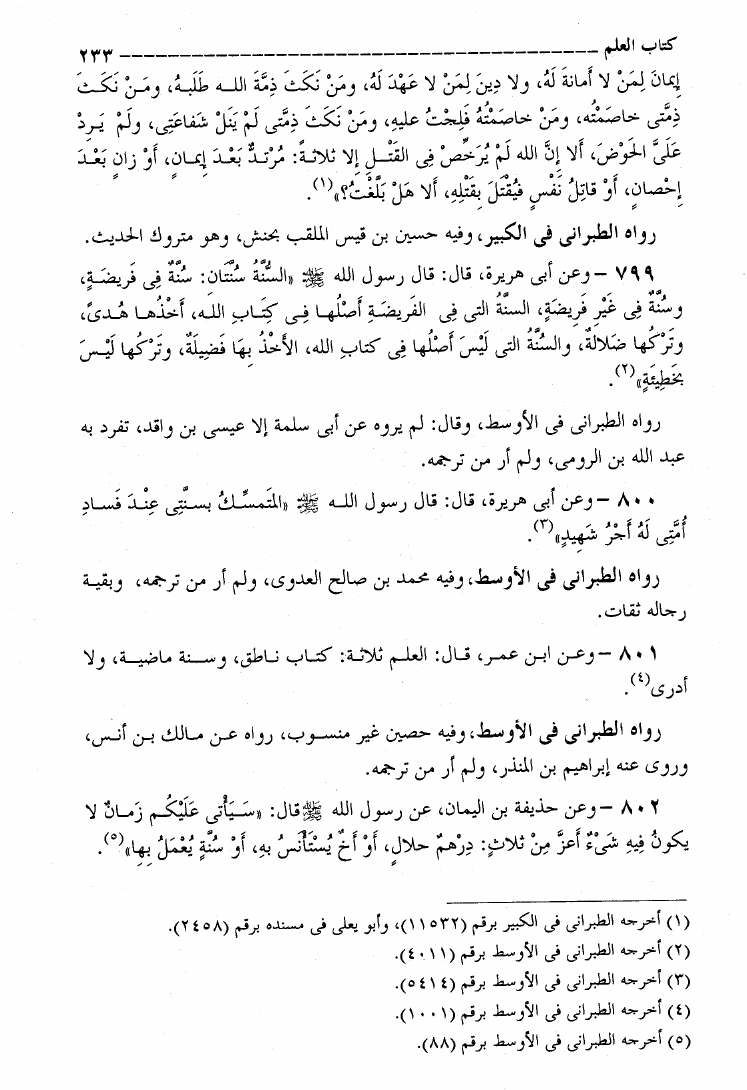 كتاب العلم ــــــــــــــــــــــــــــــــــــــــ ٢٣٣
إِيمانَ لِمَنْ لا أَمانةَ لَهُ، ولا دِينَ لِمَنْ لا عَهْدَ لَهُ، ومَنْ نَكَثَ ذِمَّةَ اللـه طَلَبَهُ، ومَـنْ نَكَـثَ
ذِمَّتِى خاصَمْتُه، ومَنْ خاصَمْتُهُ فَلِجْتُ عليهِ، ومَنْ نَكَثَ ذِمَّتِى لَمْ يَنَلْ شَفاعَتِى، ولَمْ يَرِدْ
عَلَىَّ الحَوْضَ، أَلا إِنَّ الله لَمْ يُرَخِّصْ فِى القَتْـلِ إِلا ثلاثـةً: مُرْتـدٌّ بَعْـدَ إِيمـانٍ، أَوْ زانٍ بَعْـدَ
إِحْصانٍ، أَوْ قاتِلُ نَفْسٍ فيُقْتَلَ بِقَتْلِهِ، أَلا هَلْ بَلَّغْتُ؟»(١).
رواه الطبرانى فى الكبير، وفيه حسين بن قيس الملقب بحنش، وهو متروك الحديث.
٧٩٩ – وعن أبى هريرة، قال: قال رسول الله ﷺ «السُّنَّةُ سُنَّتَان: سُنَّةٌ فِى فَرِيضَـةٍ،
وسُنَّةٌ فِى غَيْرِ فَرِيضَةٍ، السنَّةُ التى فِى الفَرِيضَـةِ أَصْلُهـا فِـى كِتَـابِ اللـه، أَخْذُهـا هُـدىً،
وتَرْكُها ضَلالةٌ، والسُّنَّةُ التى لَيْسَ أَصْلُها فِى كتابِ الله، الأَخْذُ بِهَا فَضِيلَةٌ، وتَرْكُها لَيْسَ
بخَطِيئَةٍ»(٢).
رواه الطبرانى فى الأوسط، وقال: لم يروه عن أبى سلمة إلا عيسى بن واقد، تفرد به
عبد الله بن الرومى، ولم أر من ترجمه.
٨٠٠ – وعن أبى هريرة، قال: قال رسول اللـه ﷺ «المَتَمسِّكُ بسنَّتِى عِنْدَ فَسـادِ
أُمَّتِى لَهُ أَجْرُ شَهِيدٍ»(٣).
رواه الطبرانى فى الأوسط، وفيه محمد بن صالح العدوى، ولم أر من ترجمه، وبقيـة
رجاله ثقات.
٨٠١ – وعـن ابـن عمـر، قـال: العلـم ثلاثـة: كتـاب نـاطق، وسـنة ماضيـة، ولا
أدرى(٤).
رواه الطبرانى فى الأوسط، وفيه حصين غير منسـوب، رواه عـن مـالك بـن أنـس،
وروى عنه إبراهيم بن المنذر، ولم أر من ترجمه.
٨٠٢ – وعن حذيفة بن اليمان، عن رسول الله ﷺ قال: «سَـيَأْتِى عَلَيْكُـم زَمـانٌ لا
يكونُ فِيهِ شَىْءٌ أَعزَّ مِنْ ثلاثٍ: دِرْهمٌ حلالٍ، أَوْ أخٌ يُسْتَأْنسُ بهِ، أَوْ سُنَّةٍ يُعْمَلُ بِها»(٥).
(١) أخرجه الطبرانى فى الكبير برقم (١١٥٣٢)، وأبو يعلى فى مسنده برقم (٢٤٥٨).
(٢) أخرجه الطبرانى فى الأوسط برقم (٤٠١١).
(٣) أخرجه الطبرانى فى الأوسط برقم (٥٤١٤).
(٤) أخرجه الطبرانى فى الأوسط برقم (١٠٠١).
(٥) أخرجه الطبرانى فى الأوسط برقم (٨٨).